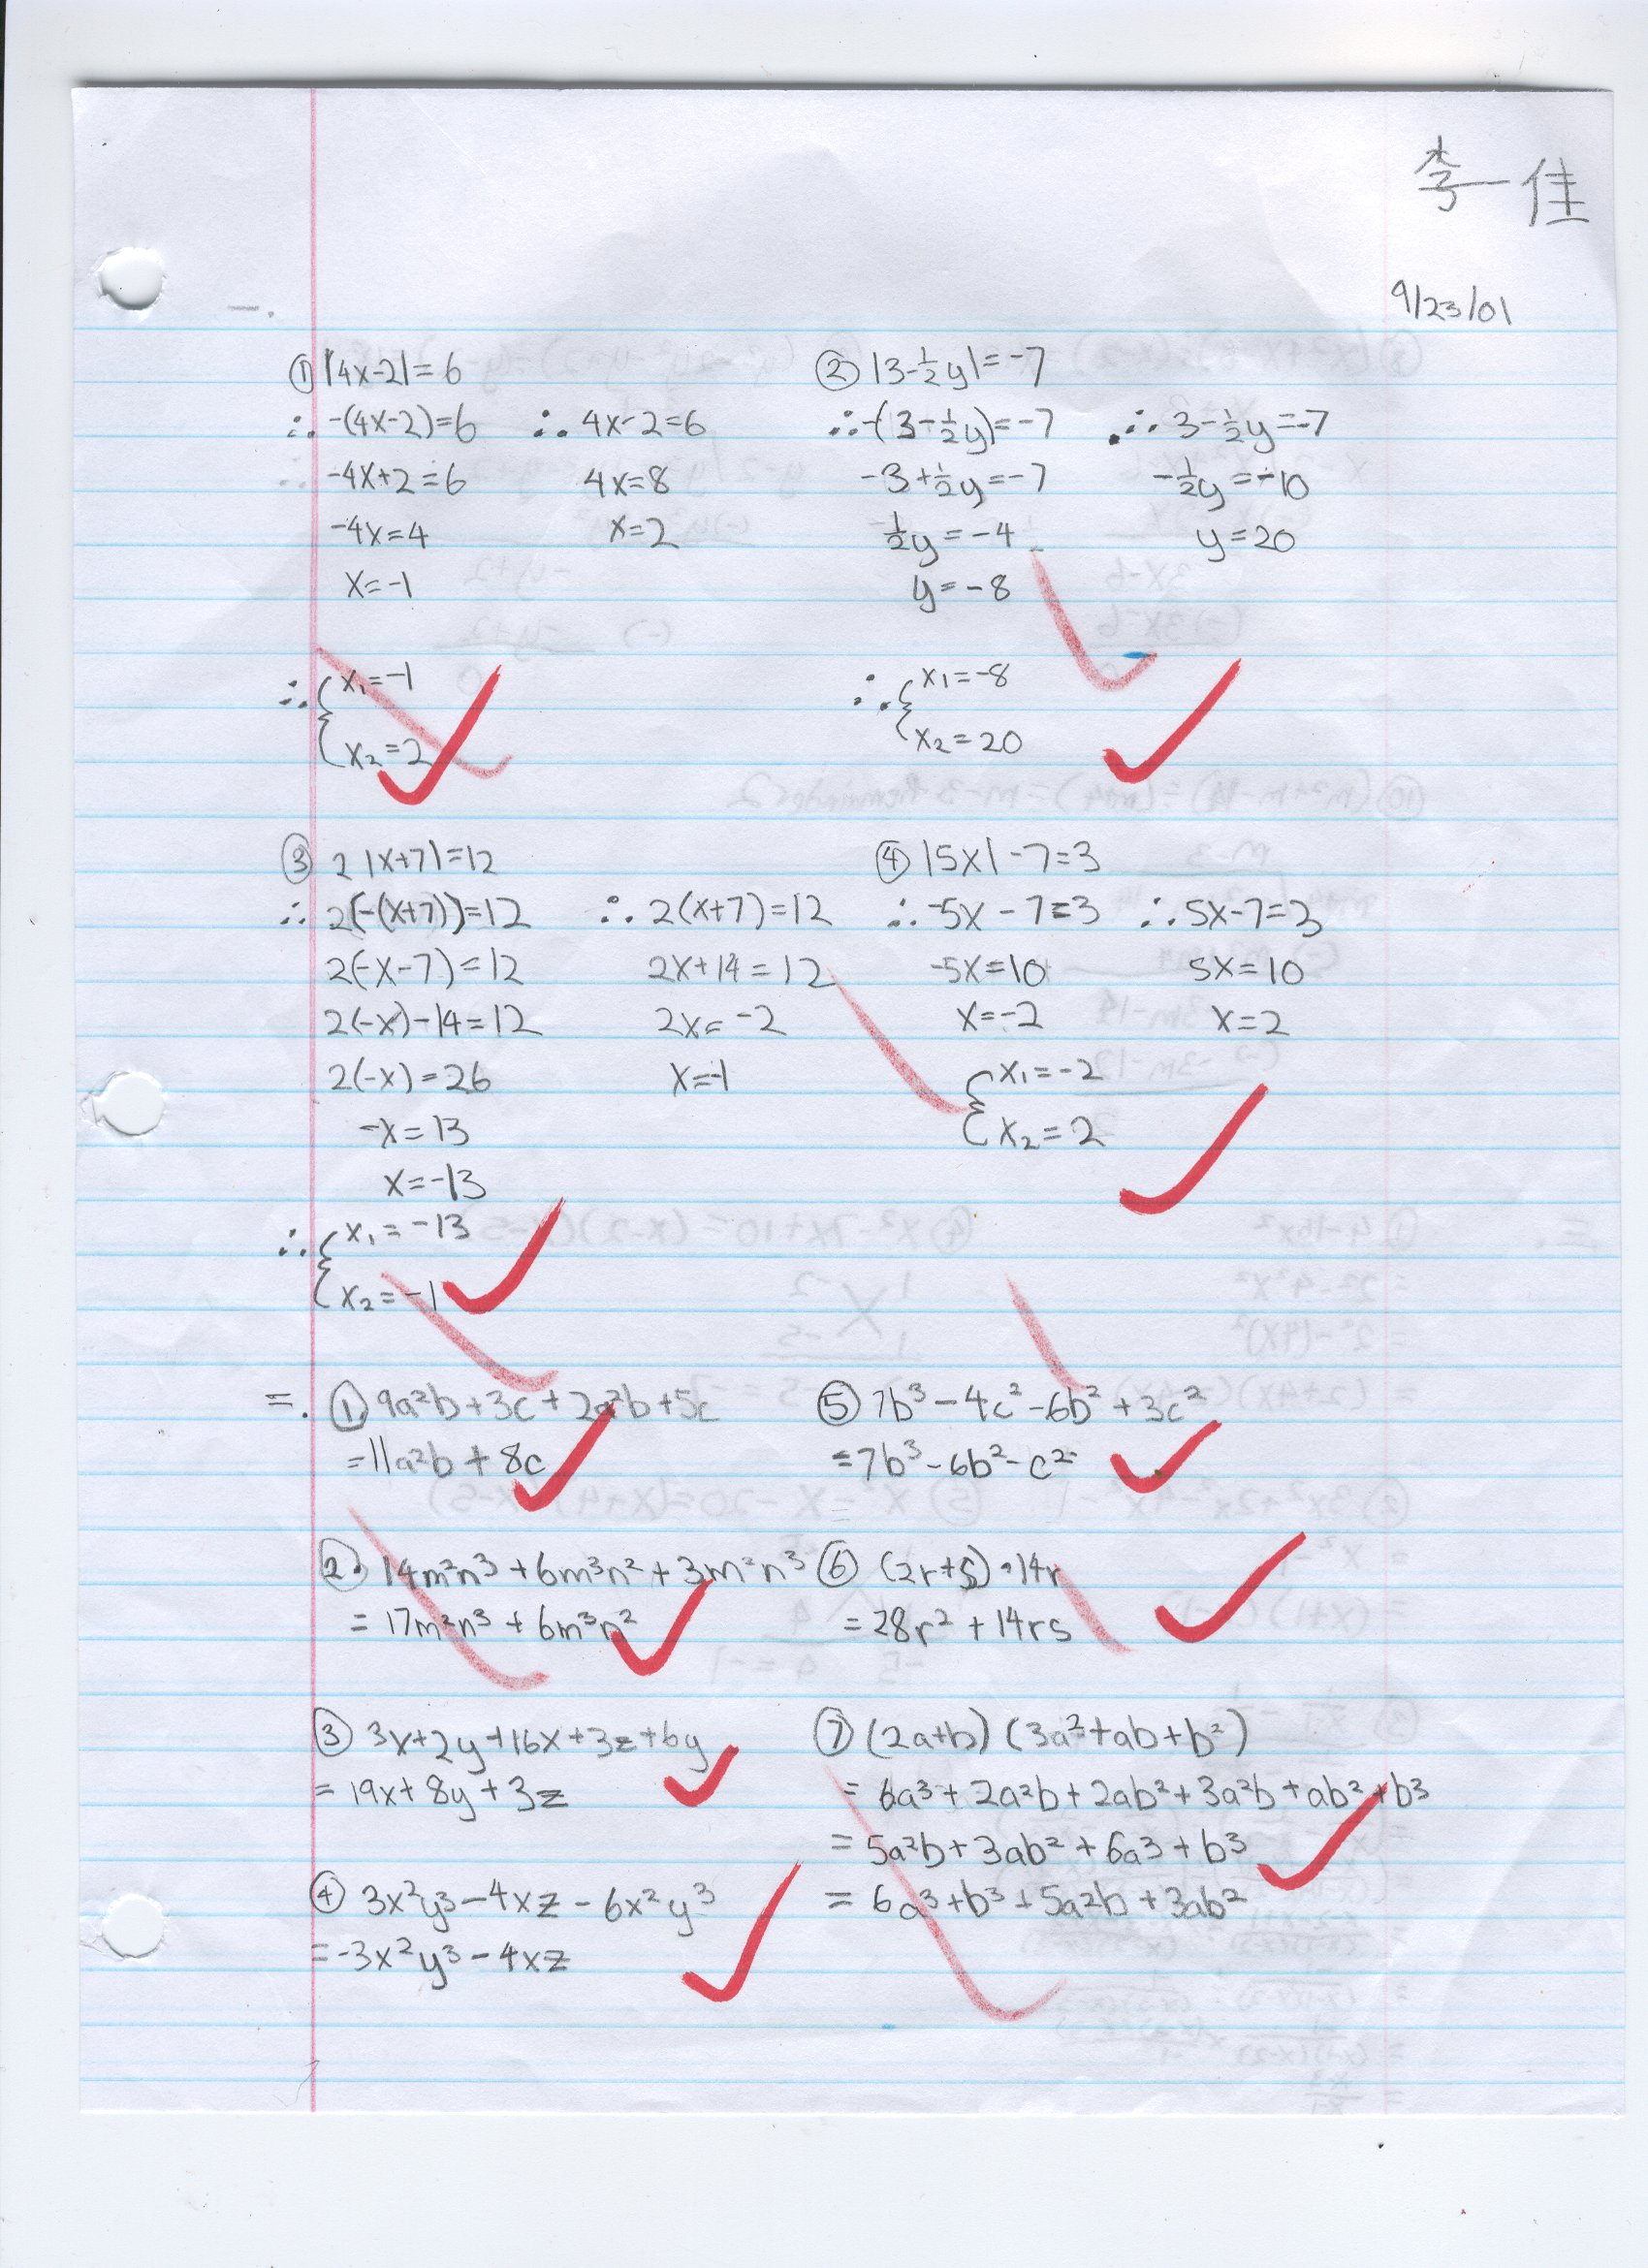 李一佳
9/23/01
一.
① |4x-2|=6
∴ -(4x-2)=6 ∴ 4x-2=6
-4x+2=6 4x=8
-4x=4 x=2
x=-1
∴ { x₁=-1
x₂=2
② |3-½y|=-7
∴ -(3-½y)=-7 ∴ 3-½y=-7
-3+½y=-7 -½y=-10
½y=-4 y=20
y=-8
∴ { x₁=-8
x₂=20
③ 2|x+7|=12
∴ 2(-(x+7))=12 ∴ 2(x+7)=12
2(-x-7)=12 2x+14=12
2(-x)-14=12 2x=-2
2(-x)=26 x=-1
-x=13
x=-13
∴ { x₁=-13
x₂=-1
④ |5x|-7=3
∴ -5x-7=3 ∴ 5x-7=3
-5x=10 5x=10
x=-2 x=2
{ x₁=-2
x₂=2
二. ① 9a²b+3c+2a²b+5c
=11a²b+8c
② 14m²n³+6m³n²+3m²n³
=17m²n³+6m³n²
③ 3x+2y+16x+3z+6y
=19x+8y+3z
④ 3x²y³-4xz-6x²y³
=-3x²y³-4xz
⑤ 7b³-4c²-6b²+3c²
=7b³-6b²-c²
⑥ (2r+s)·14r
=28r²+14rs
⑦ (2a+b)(3a²+ab+b²)
=6a³+2a²b+2ab²+3a²b+ab²+b³
=5a²b+3ab²+6a³+b³
=6a³+b³+5a²b+3ab²